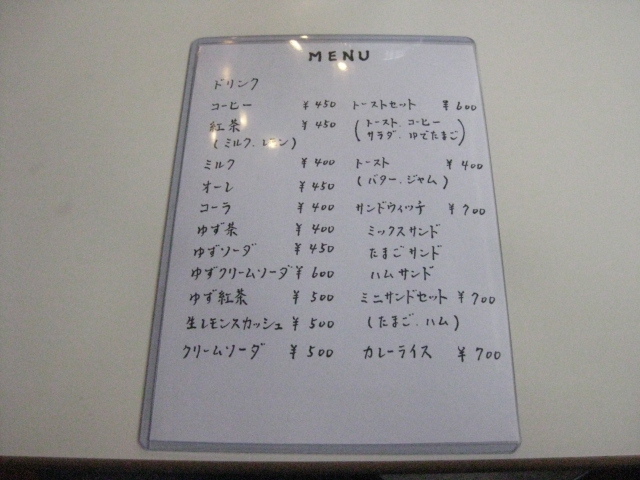 MENU
ドリンク
コーヒー ¥450
紅茶 ¥450
(ミルク、レモン)
ミルク ¥400
オーレ ¥450
コーラ ¥400
ゆず茶 ¥400
ゆずソーダ ¥450
ゆずクリームソーダ ¥600
ゆず紅茶 ¥500
生レモンスカッシュ ¥500
クリームソーダ ¥500
トーストセット ¥600
(トースト、コーヒー
サラダ、ゆでたまご)
トースト ¥400
(バター、ジャム)
サンドウィッチ ¥700
ミックスサンド
たまごサンド
ハムサンド
ミニサンドセット ¥700
(たまご、ハム)
カレーライス ¥700